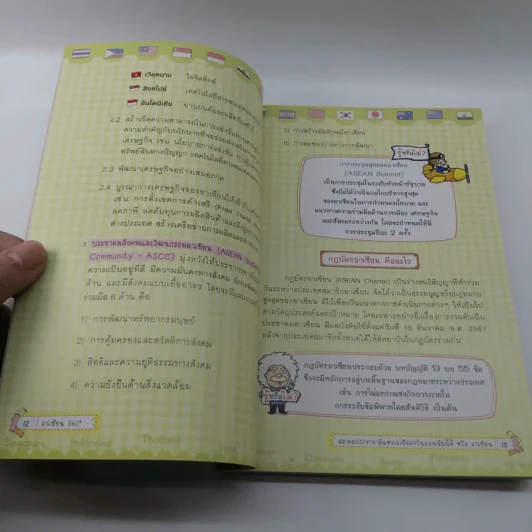 เวียดนาม โลจิสติกส์
สิงคโปร์ เทคโนโลยีสารสนเทศ
อินโดนีเซีย ยานยนต์และผลิตภัณฑ์ไม้
2.2 สร้างขีดความสามารถในการแข่งขันทาง
ความสำคัญกับนโยบายที่จะช่วยส่งเสริม
เศรษฐกิจ เช่น นโยบายการแข่งขัน
ทรัพย์สินทางปัญญา เทคโนโลยีสารสนเทศ
2.3 พัฒนาเศรษฐกิจอย่างเสมอภาค
2.4 บูรณาการเศรษฐกิจของอาเซียนให้เข้ากับ
เศรษฐกิจโลก เช่น การตั้งเขตการค้าเสรี (Free Trade
3 ประชาคมสังคมและวัฒนธรรมอาเซียน (ASEAN
Community - ASCC) มุ่งหวังให้ประชากรอาเซียน
ความเป็นอยู่ที่ดี มีความมั่นคงทางสังคม มีการพัฒนา
ด้าน และมีสังคมแบบเอื้ออาทร โดยจะเน้น
ร่วมมือ 6 ด้าน คือ
1) การพัฒนาทรัพยากรมนุษย์
2) การคุ้มครองและสวัสดิการสังคม
3) สิทธิและความยุติธรรมทางสังคม
4) ความยั่งยืนด้านสิ่งแวดล้อม
12 อาเซียน 360°
Singapore Indonesia Thailand
5) การสร้างอัตลักษณ์อาเซียน
6) การลดช่องว่างทางการพัฒนา
รู้หรือไม่?
การประชุมสุดยอดอาเซียน
(ASEAN Summit)
เป็นการประชุมในระดับหัวหน้ารัฐบาล
ซึ่งถือได้ว่าเป็นกลไกบริหารสูงสุด
ของอาเซียนในการกำหนดนโยบาย และ
แนวทางความร่วมมือด้านการเมือง เศรษฐกิจ
และสังคมระหว่างกัน โดยจะกำหนดให้มี
การประชุมปีละ 2 ครั้ง
กฎบัตรอาเซียน คืออะไร
กฎบัตรอาเซียน (ASEAN Charter) เป็นร่างสนธิสัญญาที่ทำร่วม
กันระหว่างประเทศสมาชิกอาเซียน จัดได้ว่าเป็นธรรมนูญหรือกฎหมาย
สูงสุดของอาเซียน มีไว้เพื่อเป็นแนวทางการดำเนินการต่างๆ ให้เป็นไป
ตามวัตถุประสงค์และเป้าหมาย โดยเฉพาะอย่างยิ่งเรื่องการรวมตัวเป็น
ประชาคมอาเซียน มีผลบังคับใช้ตั้งแต่วันที่ 15 ธันวาคม พ.ศ. 2551
หลังจากประเทศสมาชิกทั้งหมดได้ให้สัตยาบันในกฎบัตรร่วมกัน
กฎบัตรอาเซียนประกอบด้วย บทบัญญัติ 13 บท 55 ข้อ
ซึ่งจะมีหลักการอยู่บนพื้นฐานของกฎหมายระหว่างประเทศ
เช่น การไม่แทรกแซงกิจการภายใน
การระงับข้อพิพาทโดยสันติวิธี เป็นต้น
รู้หรือไม่?
สมาคมประชาชาติแห่งเอเชียตะวันออกเฉียงใต้ หรือ อาเซียน 13